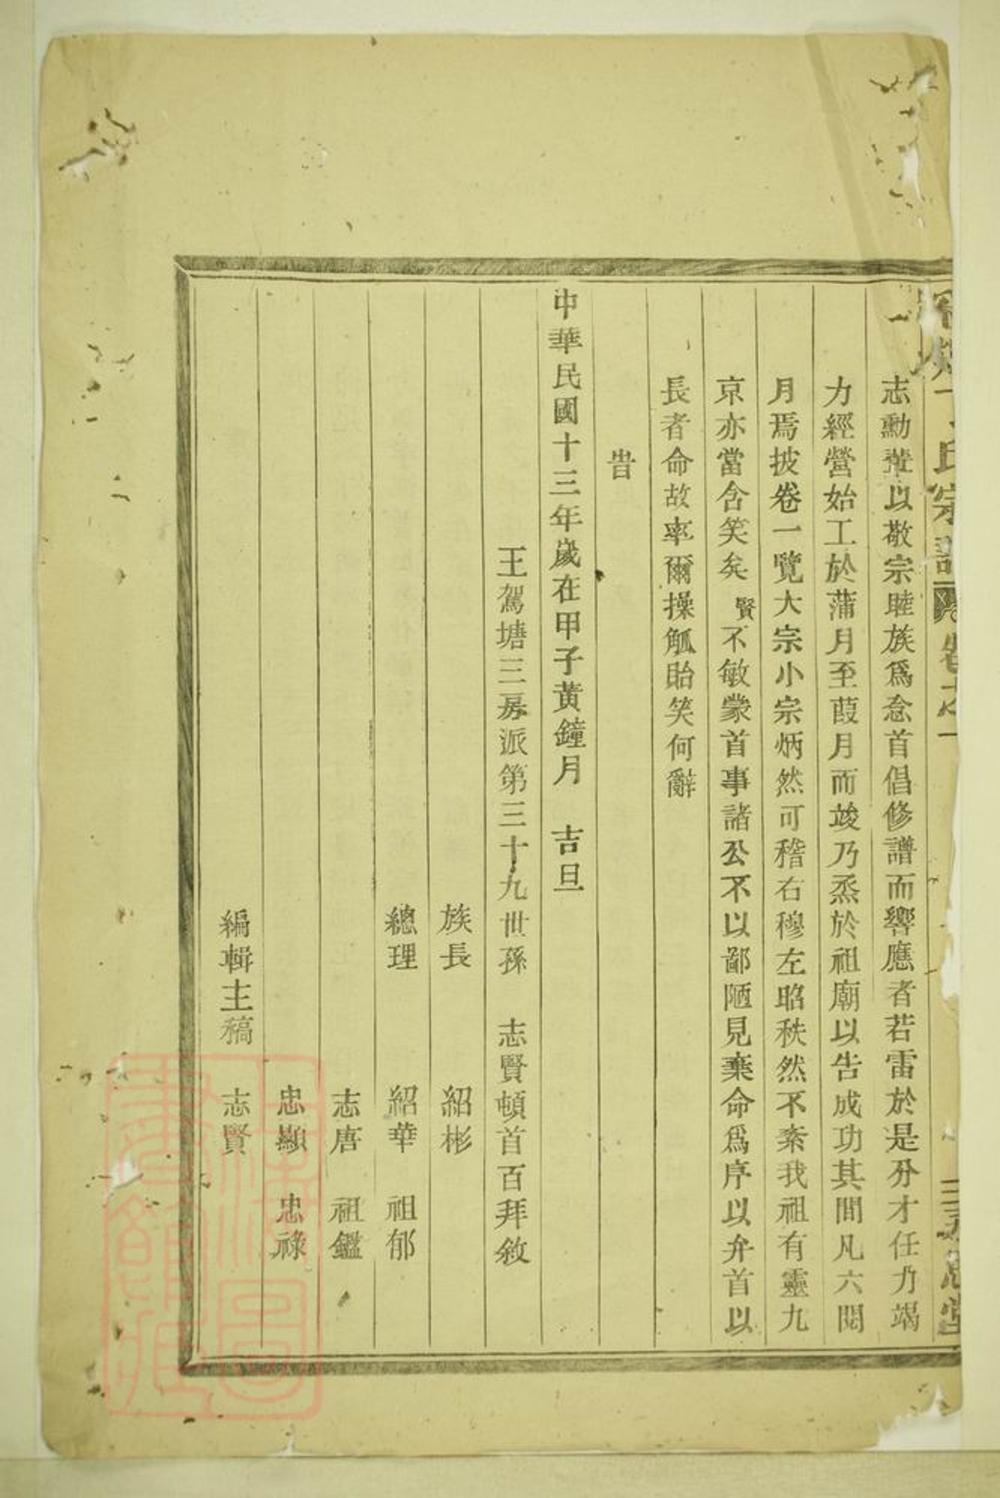 氏宗譜 卷之一
志勳輩以敬宗睦族爲念首倡修譜而響應者若雷於是分才任乃竭
力經營始工於蒲月至葭月而竣乃烝於祖廟以告成功其間凡六閱
月焉披卷一覽大宗小宗炳然可稽右穆左昭秩然不紊我祖有靈九
京亦當含笑矣賢不敏蒙首事諸公不以鄙陋見棄命爲序以弁首以
長者命故率爾操觚貽笑何辭
旹
中華民國十三年歲在甲子黃鐘月 吉旦
王駕塘三房派第三十九世孫 志賢頓首百拜敘
族長 紹彬
總理 紹華 祖郁
志唐 祖鑑
忠顯 忠祿
編輯主稿 志賢